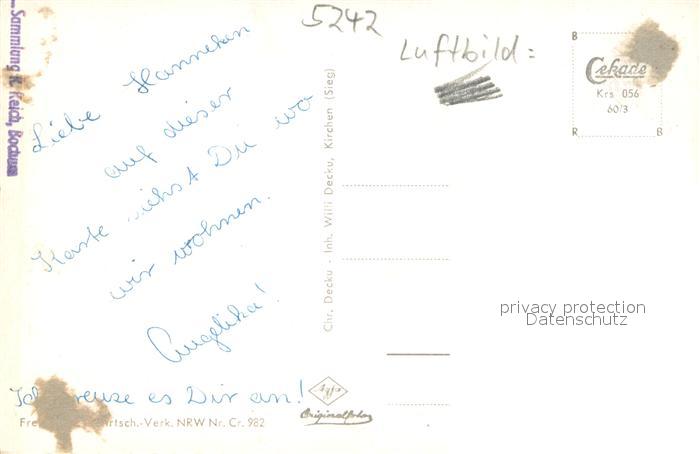 5242
Luftbild =
Sammlung K. Reich, Bochum
Liebe Hanneken
auf dieser
Karte siehst Du wo
wir wohnen.
Angelika!
Ich kreuze es Dir an!
Chr. Decku - Inh. Willi Decku, Kirchen (Sieg)
B
Cekade
Krs 056
60/3
R B
privacy protection
Datenschutz
Agfa
Originalfoto
Fre rtsch.-Verk. NRW Nr. Cr. 982